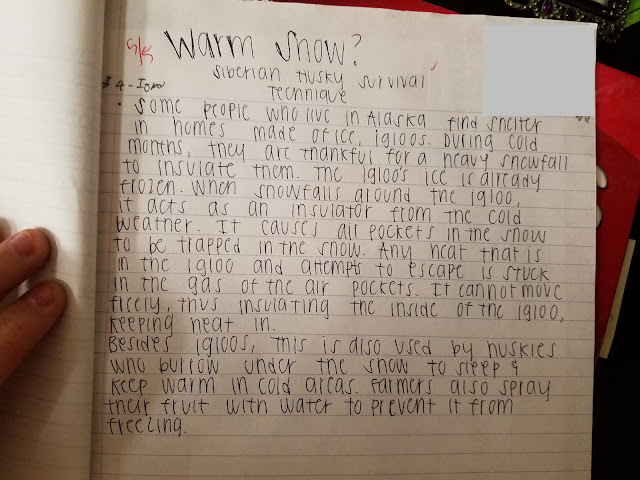 5/5 Warm Snow?
Siberian Husky Survival
Technique
#4 -
• Some people who live in Alaska find shelter
in homes made of ice, igloos. During cold
months, they are thankful for a heavy snowfall
to insulate them. The igloo's ice is already
frozen. When snowfalls around the igloo,
it acts as an insulator from the cold
weather. It causes air pockets in the snow
to be trapped in the snow. Any heat that is
in the igloo and attempts to escape is stuck
in the gas of the air pockets. It cannot move
freely, thus insulating the inside of the igloo,
keeping heat in.
Besides igloos, this is also used by huskies
who burrow under the snow to sleep &
keep warm in cold areas. Farmers also spray
their fruit with water to prevent it from
freezing.